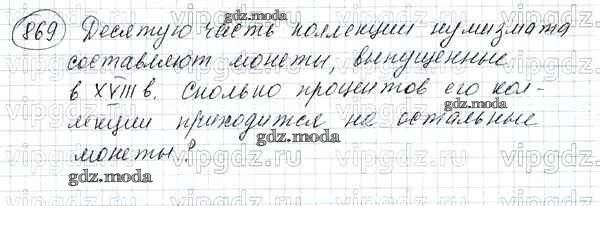 869 Десятую часть коллекции нумизмата
составляют монеты, выпущенные
в XVIII в. Сколько процентов его кол-
лекции приходится на остальные
монеты?
gdz.moda
gdz.moda
gdz.moda
gdz.moda
gdz.moda
gdz.moda
vipgdz.ru
vipgdz.ru
vipgdz.ru